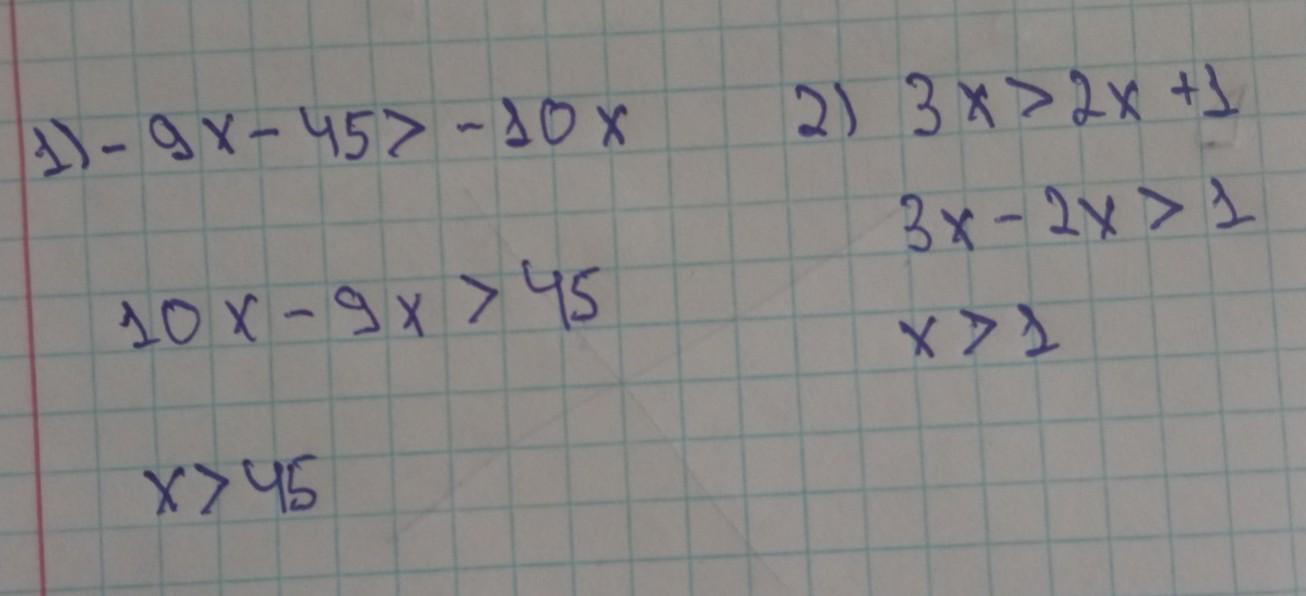 1) - 9x - 45 > - 10x
10x - 9x > 45
x > 45
2) 3x > 2x + 1
3x - 2x > 1
x > 1